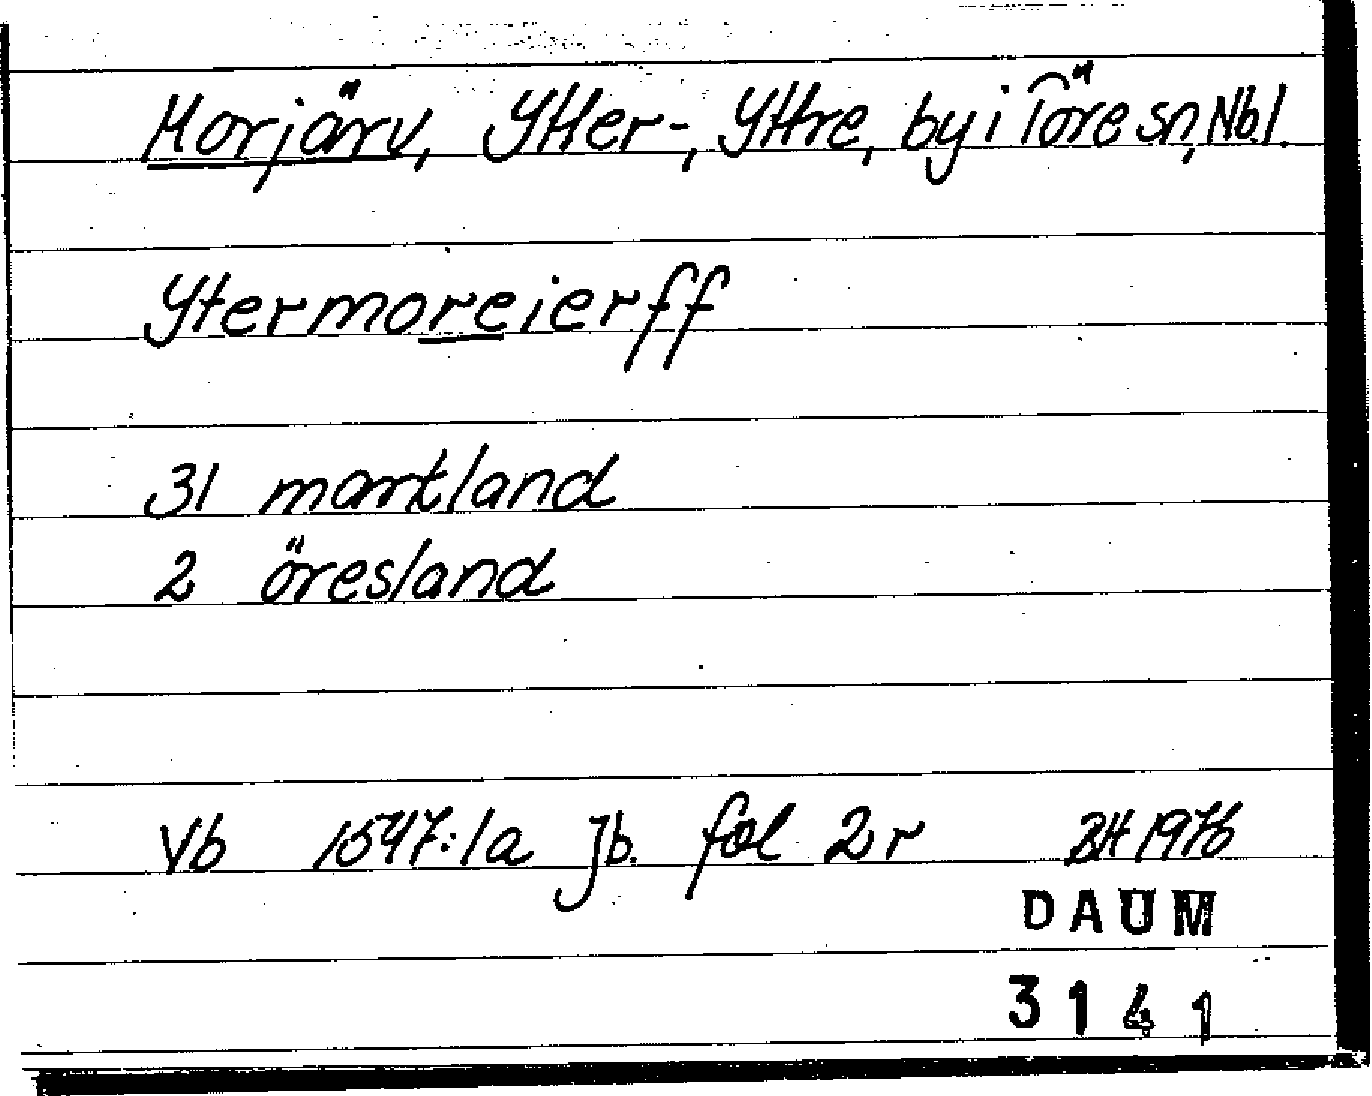 Morjärv, Ytter-, Yttre, by i Töre sn, Nbl.
Ytermoreierff
31 markland
2 öresland
Vb 1547:1a Jb. fol 2r BH 1976
DAUM
3141